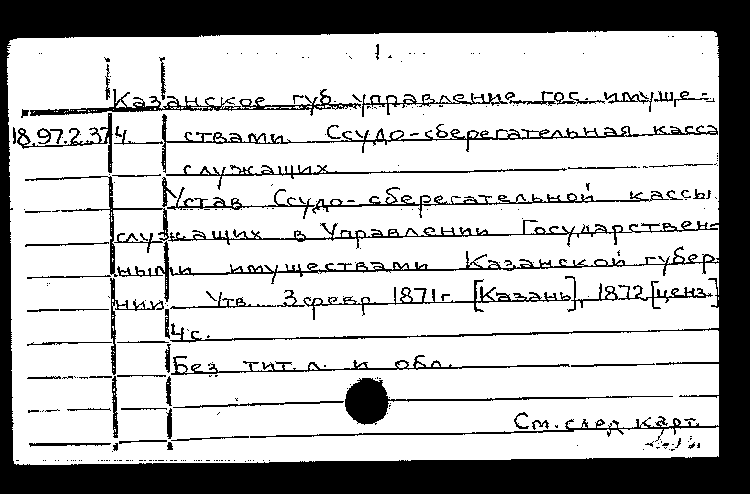 1.
Казанское губ. управление гос. имуще-
18.97.2.374. ствами. Ссудо-сберегательная касса
служащих.
Устав Ссудо-сберегательной кассы
служащих в Управлении Государствен-
ными имуществами Казанской губер-
нии. Утв. 3 февр. 1871 г. [Казань], 1872 [ценз.]
4 с.
Без тит. л. и обл.
См. след. карт.